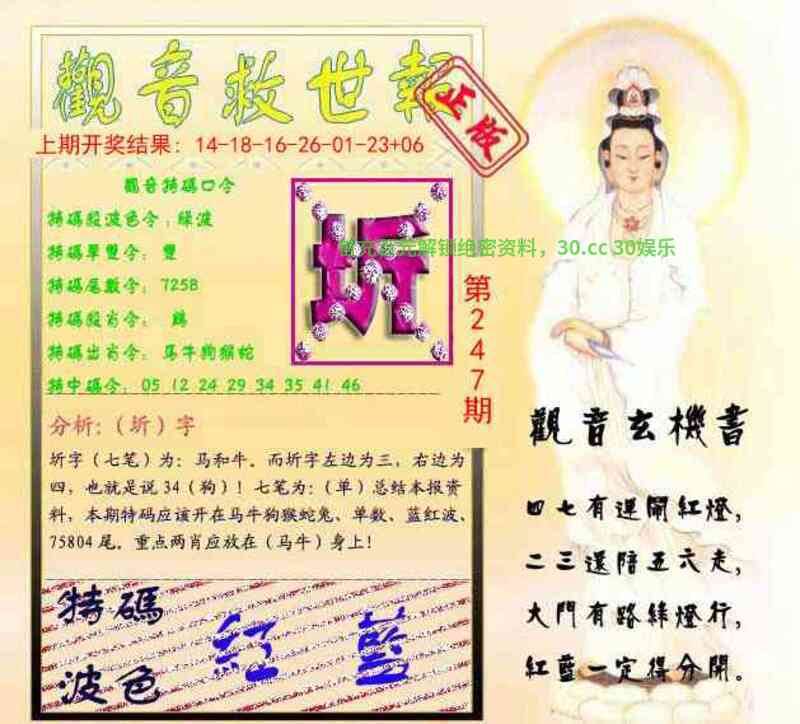 觀音救世報
正版
上期开奖结果：14-18-16-26-01-23+06
觀音特碼口令
特碼殺波色令：綠波
特碼單雙令：雙
特碼尾數令：7258
特碼殺肖令：鷄
特碼出肖令：马牛狗猴蛇
特中碼令：05 12 24 29 34 35 41 46
圻
解锁绝密资料，30.cc 30娱乐
第247期
分析:（圻）字
圻字（七笔）为：马和牛。而圻字左边为三，右边为
四，也就是说34（狗）！七笔为：（单）总结本报资
料，本期特码应该开在马牛狗猴蛇兔、单数、蓝红波、
75804尾。重点两肖应放在（马牛）身上！
特碼
波色
紅 藍
觀音玄機書
四七有運開紅燈，
二三還陪五六走，
大門有路綠燈行，
紅藍一定得分開。